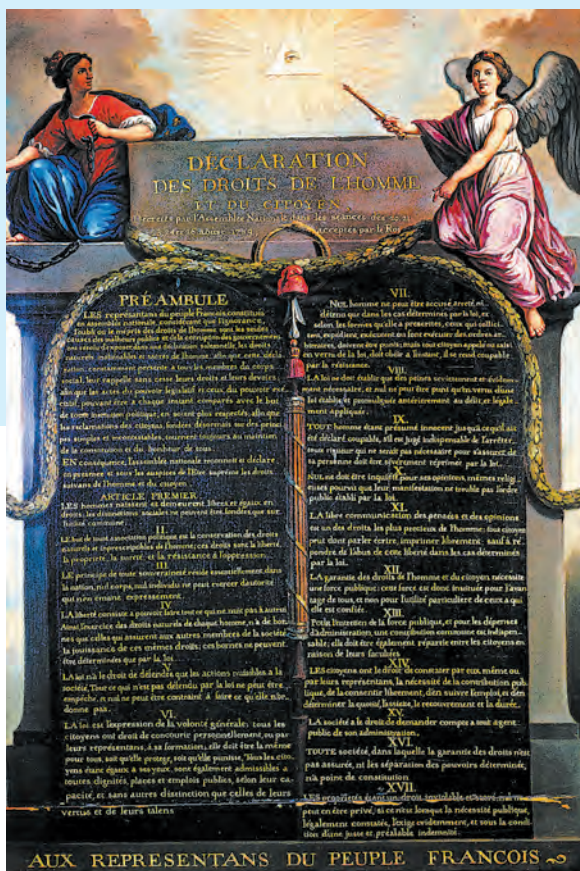 DÉCLARATION
DES DROITS DE L'HOMME
ET DU CITOYEN
Décrétés par l'Assemblée Nationale dans les séances des 20, 21
acceptés par le Roi
PRÉAMBULE
LES représentans du peuple François, constitués
en assemblée nationale, considérant que l'ignorance,
l'oubli ou le mépris des droits de l'homme sont les seules
causes des malheurs publics et de la corruption des gouvernemens
ont résolu d'exposer dans une déclaration solemnelle, les droits
naturels, inaliénables et sacrés de l'homme; afin que cette déclaration,
constamment présente à tous les membres du corps
social, leur rappelle sans cesse leurs droits et leurs devoirs;
afin que les actes du pouvoir législatif et ceux du pouvoir exécutif,
pouvant être à chaque instant comparés avec le but
de toute institution politique, en soient plus respectés; afin que
les réclamations des citoyens, fondées désormais sur des principes
simples et incontestables, tournent toujours au maintien
de la constitution et du bonheur de tous.
EN conséquence, l'assemblée nationale reconnoit et déclare,
en présence et sous les auspices de l'Être suprême les droits
suivans de l'homme et du citoyen.
ARTICLE PREMIER.
LES hommes naissent et demeurent libres et égaux en
droits; les distinctions sociales ne peuvent être fondées que sur
l'utilité commune.
II.
LE but de toute association politique est la conservation des droits
naturels et imprescriptibles de l'homme; ces droits sont la liberté,
la propriété, la sureté, et la résistance à l'oppression.
III.
LE principe de toute souveraineté réside essentiellement dans
la nation, nul corps, nul individu ne peut exercer d'autorité
qui n'en émane expressement.
IV.
LA liberté consiste à pouvoir faire tout ce qui ne nuit pas à autrui
Ainsi, l'exercice des droits naturels de chaque homme, n'a de bornes
que celles qui assurent aux autres membres de la société
la jouissance de ces mêmes droits; ces bornes ne peuvent
être déterminées que par la loi.
LA loi n'a le droit de défendre que les actions nuisibles à la
société. Tout ce qui n'est pas défendu par la loi ne peut être
empêché, et nul ne peut être contraint à faire ce qu'elle n'ordonne
pas.
VI.
LA loi est l'expression de la volonté générale; tous les
citoyens ont droit de concourir personnellement, ou par
leurs représentans, à sa formation; elle doit être la même
pour tous, soit qu'elle protège, soit qu'elle punisse. Tous les citoyens
étant égaux à ses yeux, sont également admissibles à
toutes dignités, places et emplois publics, selon leur capacité,
et sans autres distinction que celles de leurs
vertus et de leurs talens
VII.
NUL homme ne peut être accusé, arreté, ni
détenu que dans les cas déterminés par la loi, et
selon les formes qu'elle a préscrites, ceux qui sollicitent,
expédient, exécutent ou font exécuter des ordres arbitraires,
doivent être punis; mais tout citoyen appelé ou saisi
en vertu de la loi, doit obéir à l'instant, il se rend coupable
par la résistance.
VIII.
LA loi ne doit établir que des peines strictement et évidemment
nécessaire, et nul ne peut être puni qu'en vertu d'une
loi établie et promulguée antérieurement au délit, et légalement
appliquée.
IX.
TOUT homme étant présumé innocent jusqu'à ce qu'il ait
été déclaré coupable, s'il est jugé indispensable de l'arrêter,
toute rigueur qui ne serait pas nécessaire pour s'assurer de
sa personne doit être sévèrement réprimée par la loi.
X.
NUL ne doit être inquiété pour ses opinions, mêmes religieuses
pourvu que leur manifestation ne trouble pas l'ordre
public établi par la loi.
XI.
LA libre communication des pensées et des opinions
est un des droits les plus précieux de l'homme; tout citoyen
peut donc parler, écrire, imprimer librement, sauf à répondre
de l'abus de cette liberté dans les cas déterminés
par la loi.
XII.
LA garantie des droits de l'homme et du citoyen nécessite
une force publique; cette force est donc instituée pour l'avantage
de tous, et non pour l'utilité particulière de ceux à qui
elle est confiée.
XIII.
POUR l'entretien de la force publique, et pour les dépenses
d'administration, une contribution commune est indispensable;
elle doit être également répartie entre les citoyens en
raison de leurs facultées
XIV.
LES citoyens ont le droit de constater par eux même ou
par leurs représentans, la nécéssité de la contribution publique,
de la consentir librement, d'en suivre l'emploi, et d'en
déterminer la quotité, l'assiette, le recouvrement et la durée.
XV.
LA société a le droit de demander compte à tout agent
public de son administration.
XVI.
TOUTE société, dans laquelle la garantie des droits n'est
pas assurée, ni les séparation des pouvoirs déterminée,
n'a point de constitution
XVII.
LES propriétés étant un droit inviolable et sacré, nul ne
peut en être privé, si ce n'est lorsque la nécéssité publique,
légalement constatée, l'exige evidemment, et sous la condition
d'une juste et préalable indemnité.
AUX REPRESENTANS DU PEUPLE FRANCOIS